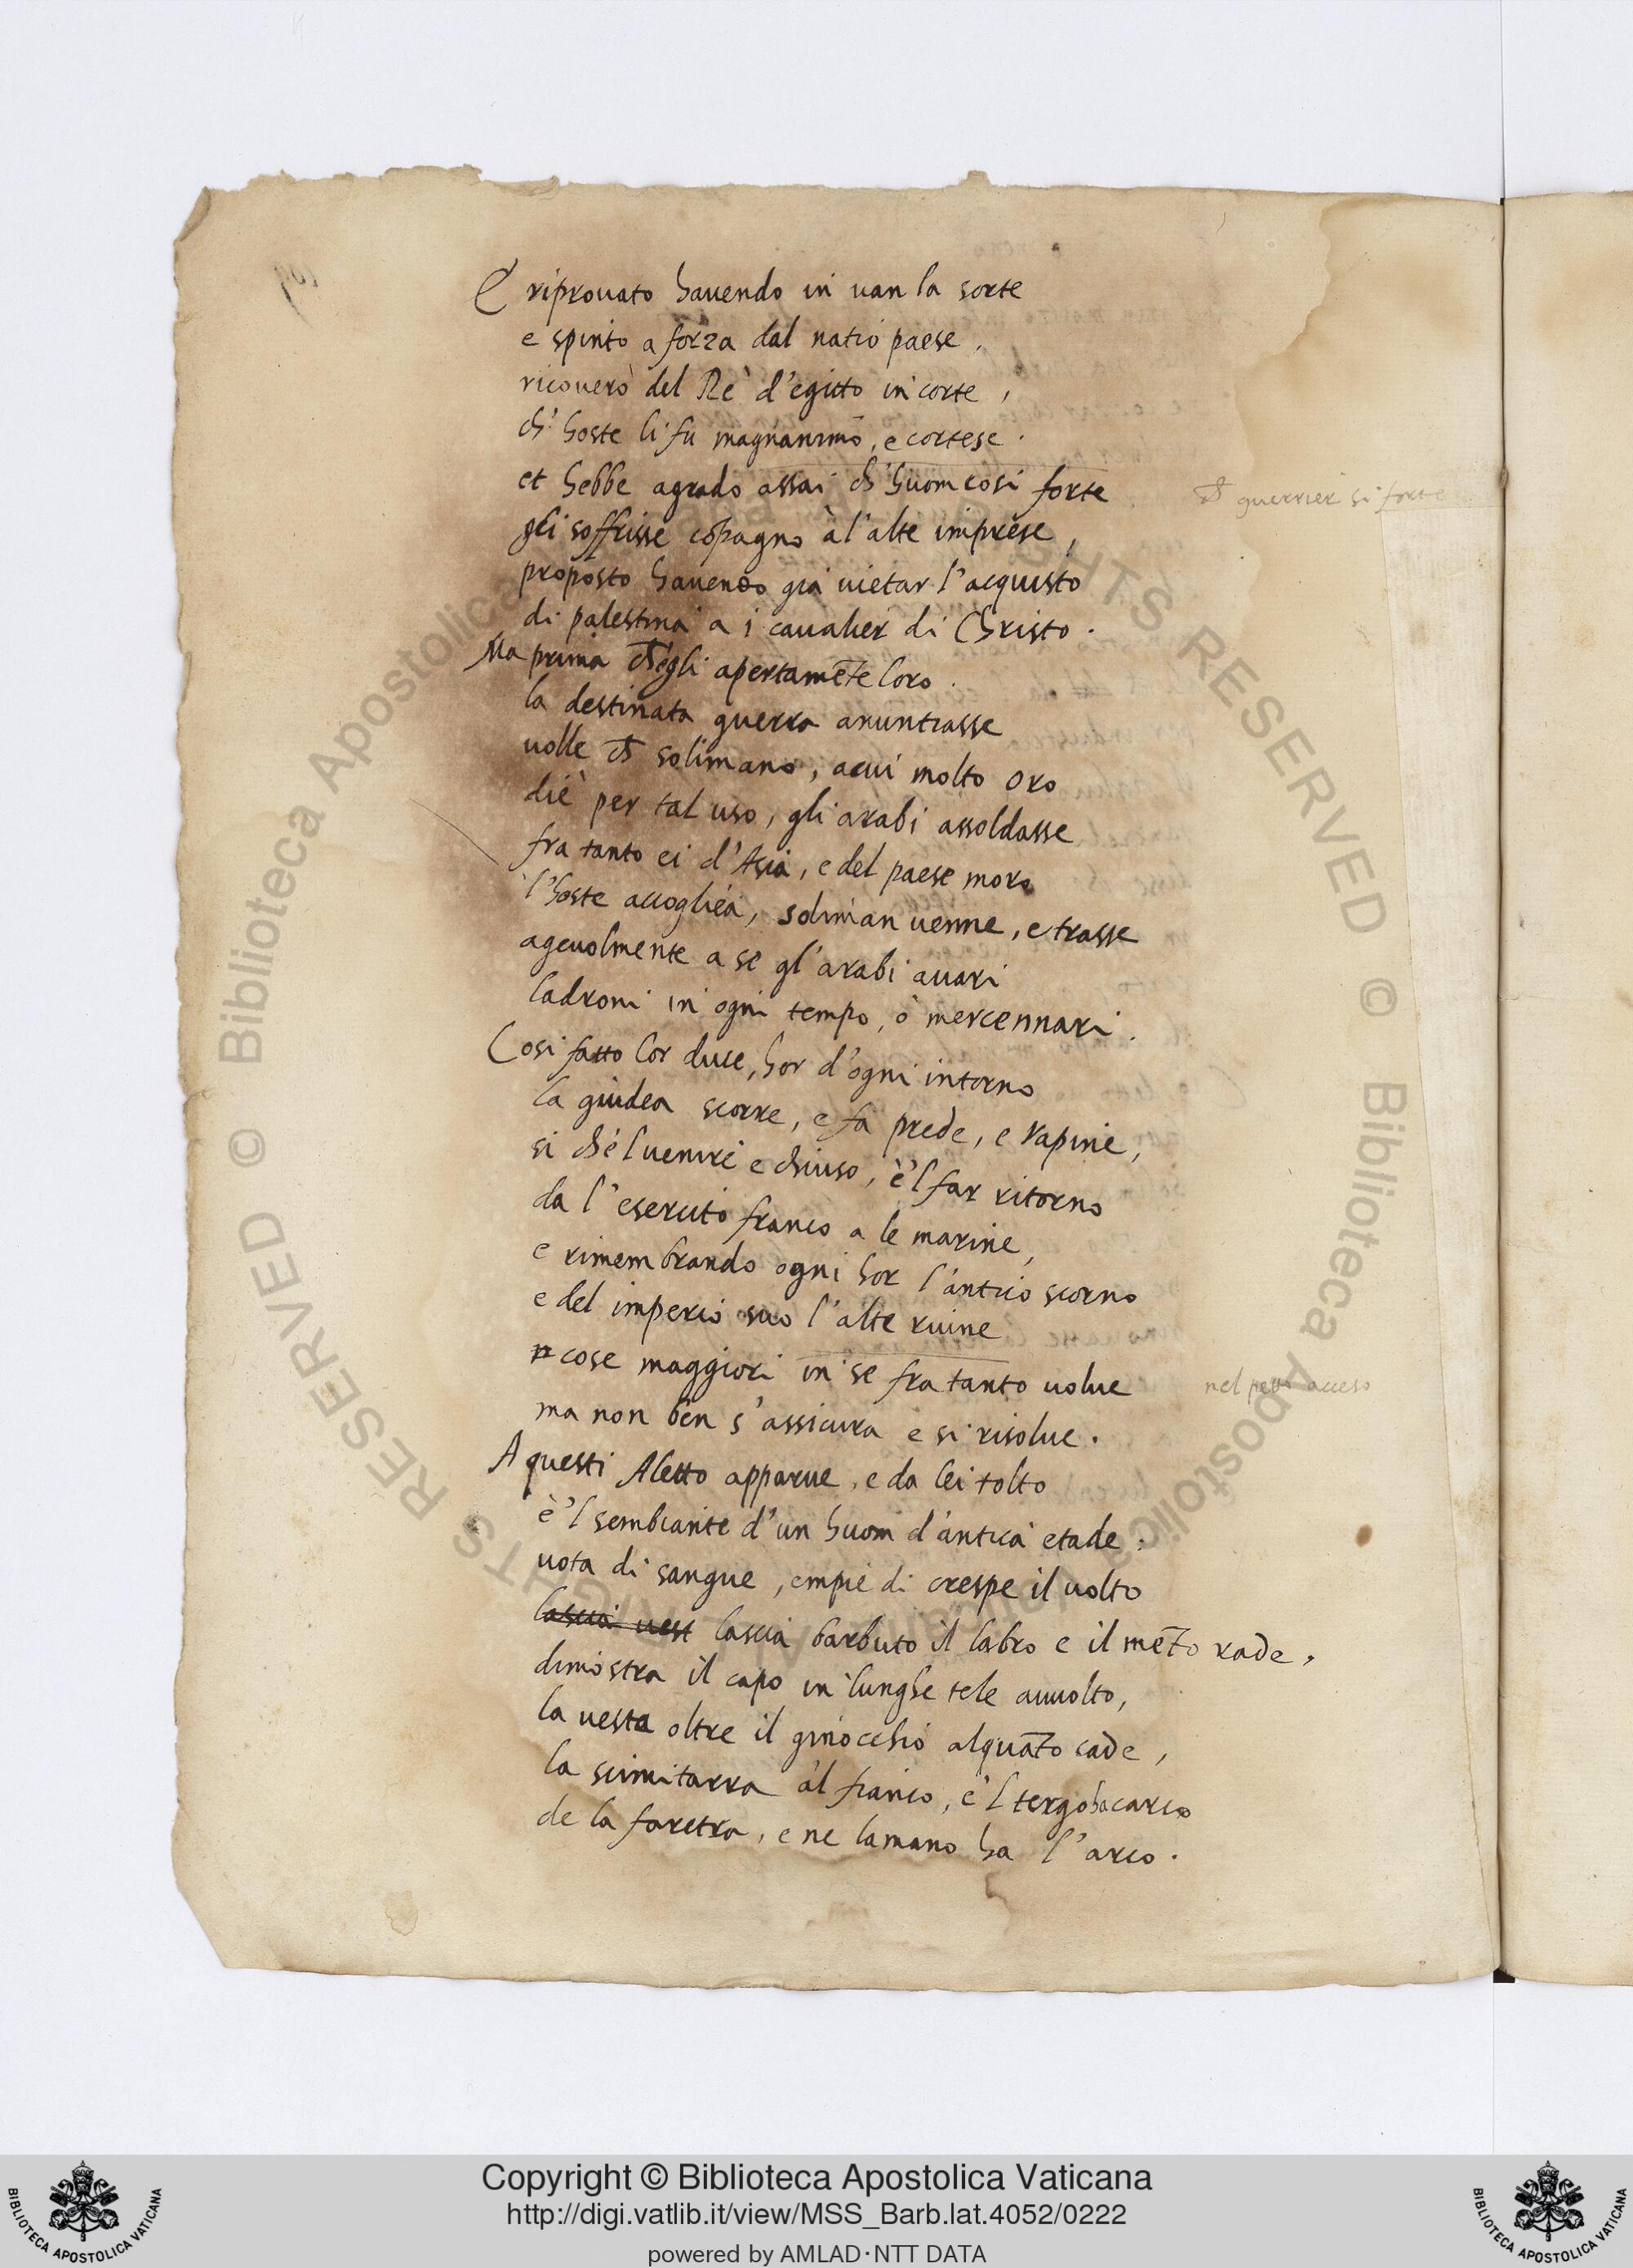 E riprouato hauendo in uan la sorte
e spinto a forza dal natio paese,
ricouerò del Rè d'egitto in corte,
ch' hoste li fù magnanimo, e cortese.
et hebbe agrado assai ch' huom cosi forte
ch guerrier si forte
gli soffrisse cõpagno à l'alte imprese,
proposto hauendo già uietar l'acquisto
di palestina a i caualier di Christo.
Ma prima ch'egli apertamẽte loro
la destinata guerra anuntiasse
uolle ch solimano, acui molto oro
diè per tal uso, gli arabi assoldasse
fra tanto ei d'Asia, e del paese moro
l'hoste accogliea, soliman uenne, e trasse
ageuolmente a se gl'arabi auari
ladroni in ogni tempo, ò mercennari.
Cosi fatto lor duce, hor d'ogni intorno
la giudea scorre, e fa prede, e rapine,
si che'l uenire e chiuso, è'l far ritorno
da l'esercito franco a le marine,
e rimembrando ogni hor l'antico scorno
e del imperio suo l'alte ruine
cose maggiori in se fra tanto uolue
nel petto acceso
ma non ben s'assicura e si risolue.
A questi Aletto apparue, e da lei tolto
è'l sembiante d'un huom d'antica etade.
uota di sangue, empie di crespe il uolto
lascia uest lascia barbuto il labro e il mẽto rade,
dimostra il capo in lunghe tele auuolto,
la uesta oltre il ginocchio alquãto cade,
la scimitarra al fianco, e'l tergo ha carco
de la faretra, e ne la mano ha l'arco.
Copyright © Biblioteca Apostolica Vaticana
http://digi.vatlib.it/view/MSS_Barb.lat.4052/0222
powered by AMLAD·NTT DATA
BIBLIOTECA APOSTOLICA VATICANA
BIBLIOTECA APOSTOLICA VATICANA